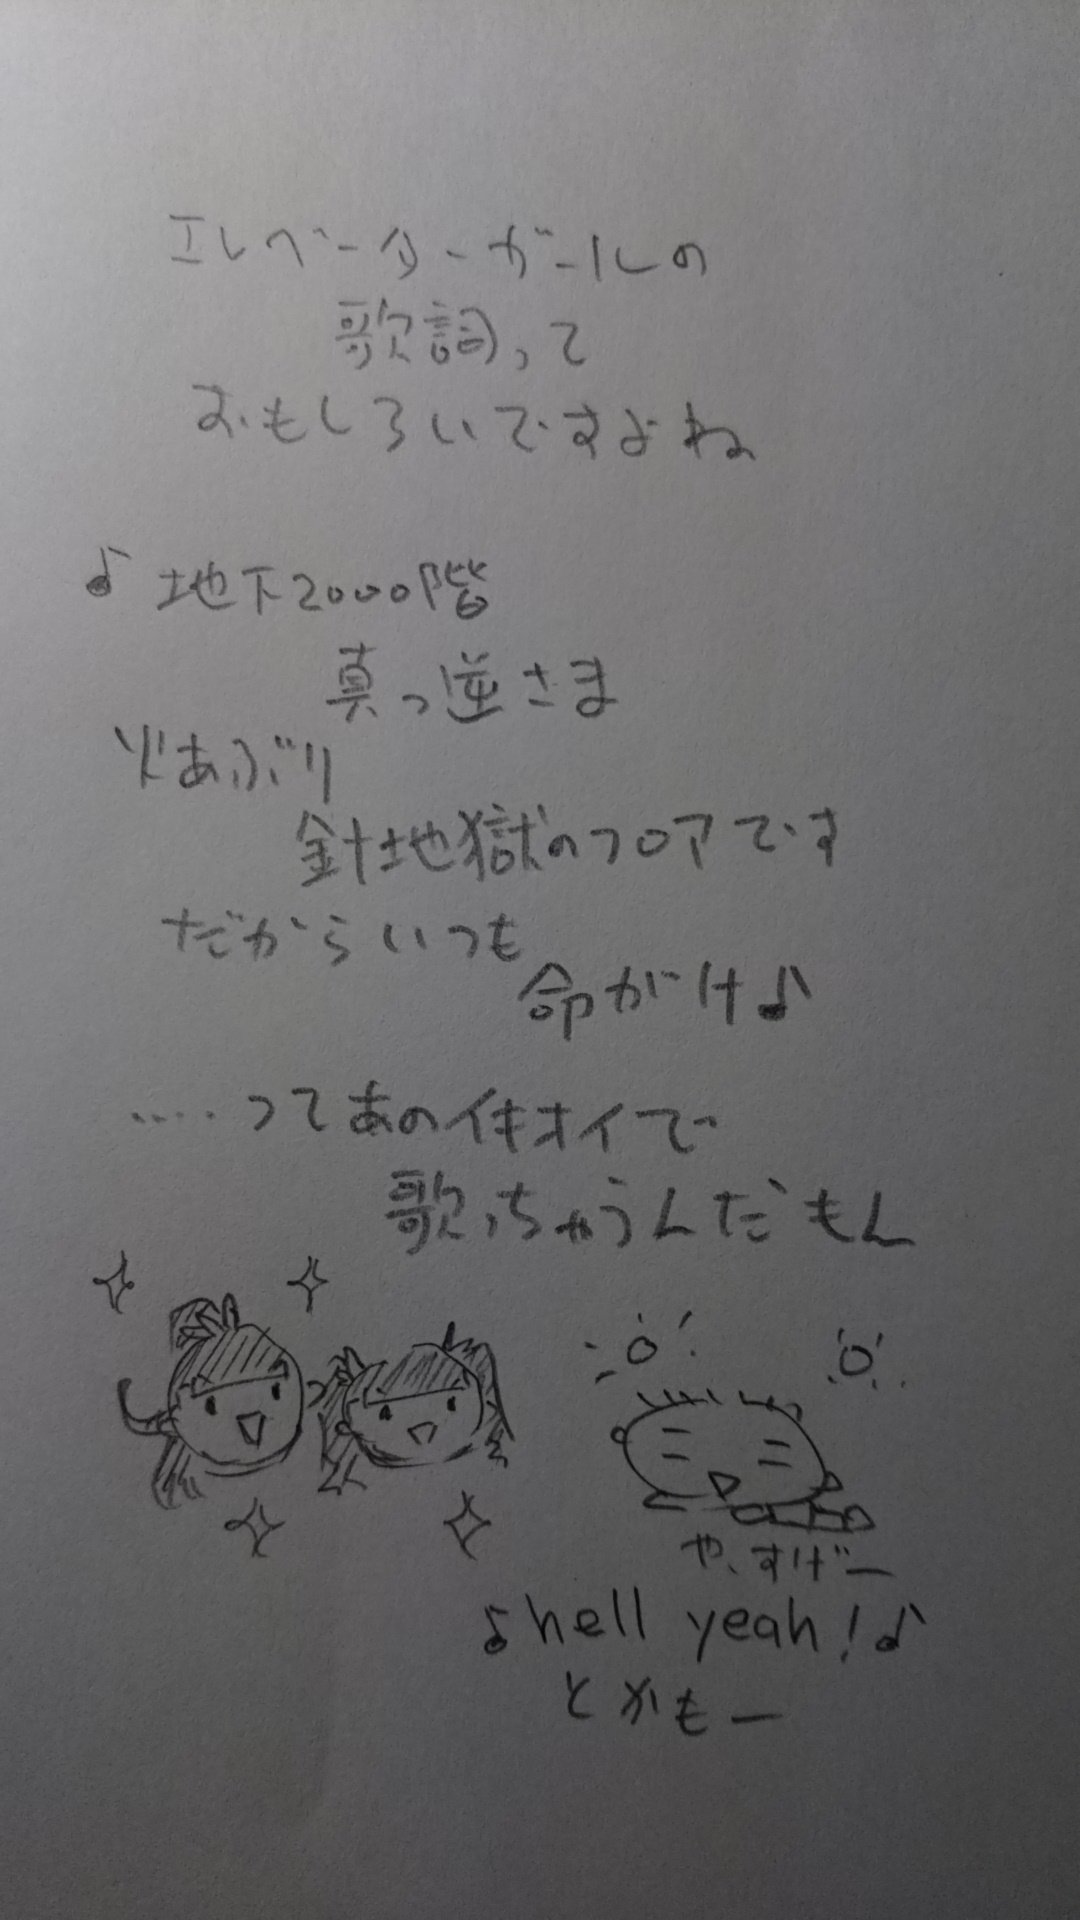 エレベーターガールの
歌詞って
おもしろいですよね
♪地下2000階
真っ逆さま
火あぶり
針地獄のフロアです
だからいつも
命がけ♪
‥‥ってあのイキオイで
歌っちゃうんだもん
や、すげー
♪hell yeah!♪
とかもー